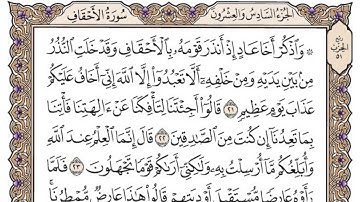 الجزء السادس والعشرون
سورة الأحقاف
ربع
الحزب
٥١
۞ وَٱذْكُرْ أَخَا عَادٍ إِذْ أَنذَرَ قَوْمَهُۥ بِٱلْأَحْقَافِ وَقَدْ خَلَتِ ٱلنُّذُرُ
مِنۢ بَيْنِ يَدَيْهِ وَمِنْ خَلْفِهِۦٓ أَلَّا تَعْبُدُوٓا۟ إِلَّا ٱللَّهَ إِنِّىٓ أَخَافُ عَلَيْكُمْ
عَذَابَ يَوْمٍ عَظِيمٍ ٢١ قَالُوٓا۟ أَجِئْتَنَا لِتَأْفِكَنَا عَنْ ءَالِهَتِنَا فَأْتِنَا
بِمَا تَعِدُنَآ إِن كُنتَ مِنَ ٱلصَّـٰدِقِينَ ٢٢ قَالَ إِنَّمَا ٱلْعِلْمُ عِندَ ٱللَّهِ
وَأُبَلِّغُكُم مَّآ أُرْسِلْتُ بِهِۦ وَلَـٰكِنِّىٓ أَرَىٰكُمْ قَوْمًا تَجْهَلُونَ ٢٣ فَلَمَّا
رَأَوْهُ عَارِضًا مُّسْتَقْبِلَ أَوْدِيَتِهِمْ قَالُوا۟ هَـٰذَا عَارِضٌ مُّمْطِرُنَا